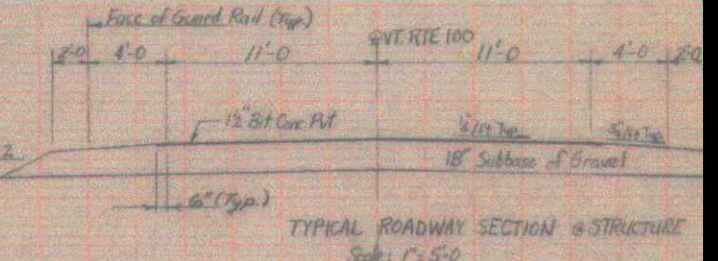 Face of Guard Rail (Typ.)
℄ VT. RTE 100
2'-0 4'-0 11'-0 11'-0 4'-0 2'-0
1½" Bit. Conc. Pvt
¼"/Ft Typ.
18" Subbase of Gravel
2
6" (Typ.)
TYPICAL ROADWAY SECTION @ STRUCTURE
Scale: 1" = 5'-0